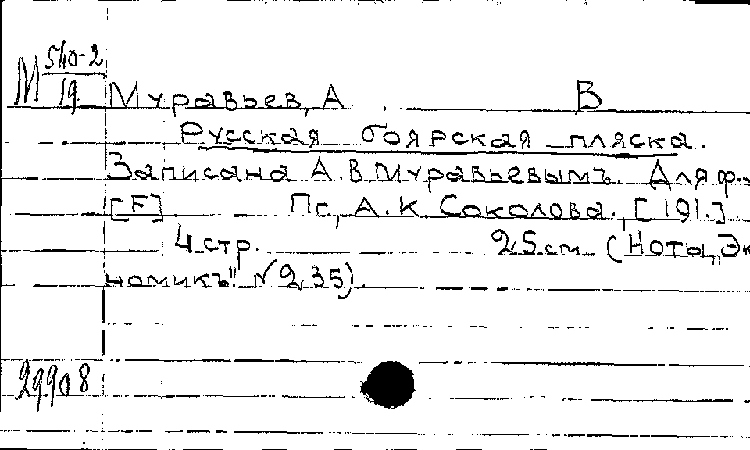 М 540-2
19
Муравьев, А В
Русская боярская пляска.
Записана А. В. Муравьевымъ. Для ф.
[F] Пс, А. К. Соколова. [191.]
4 стр. 25 см (Нота, „Эк
номикъ" № 235).
29908